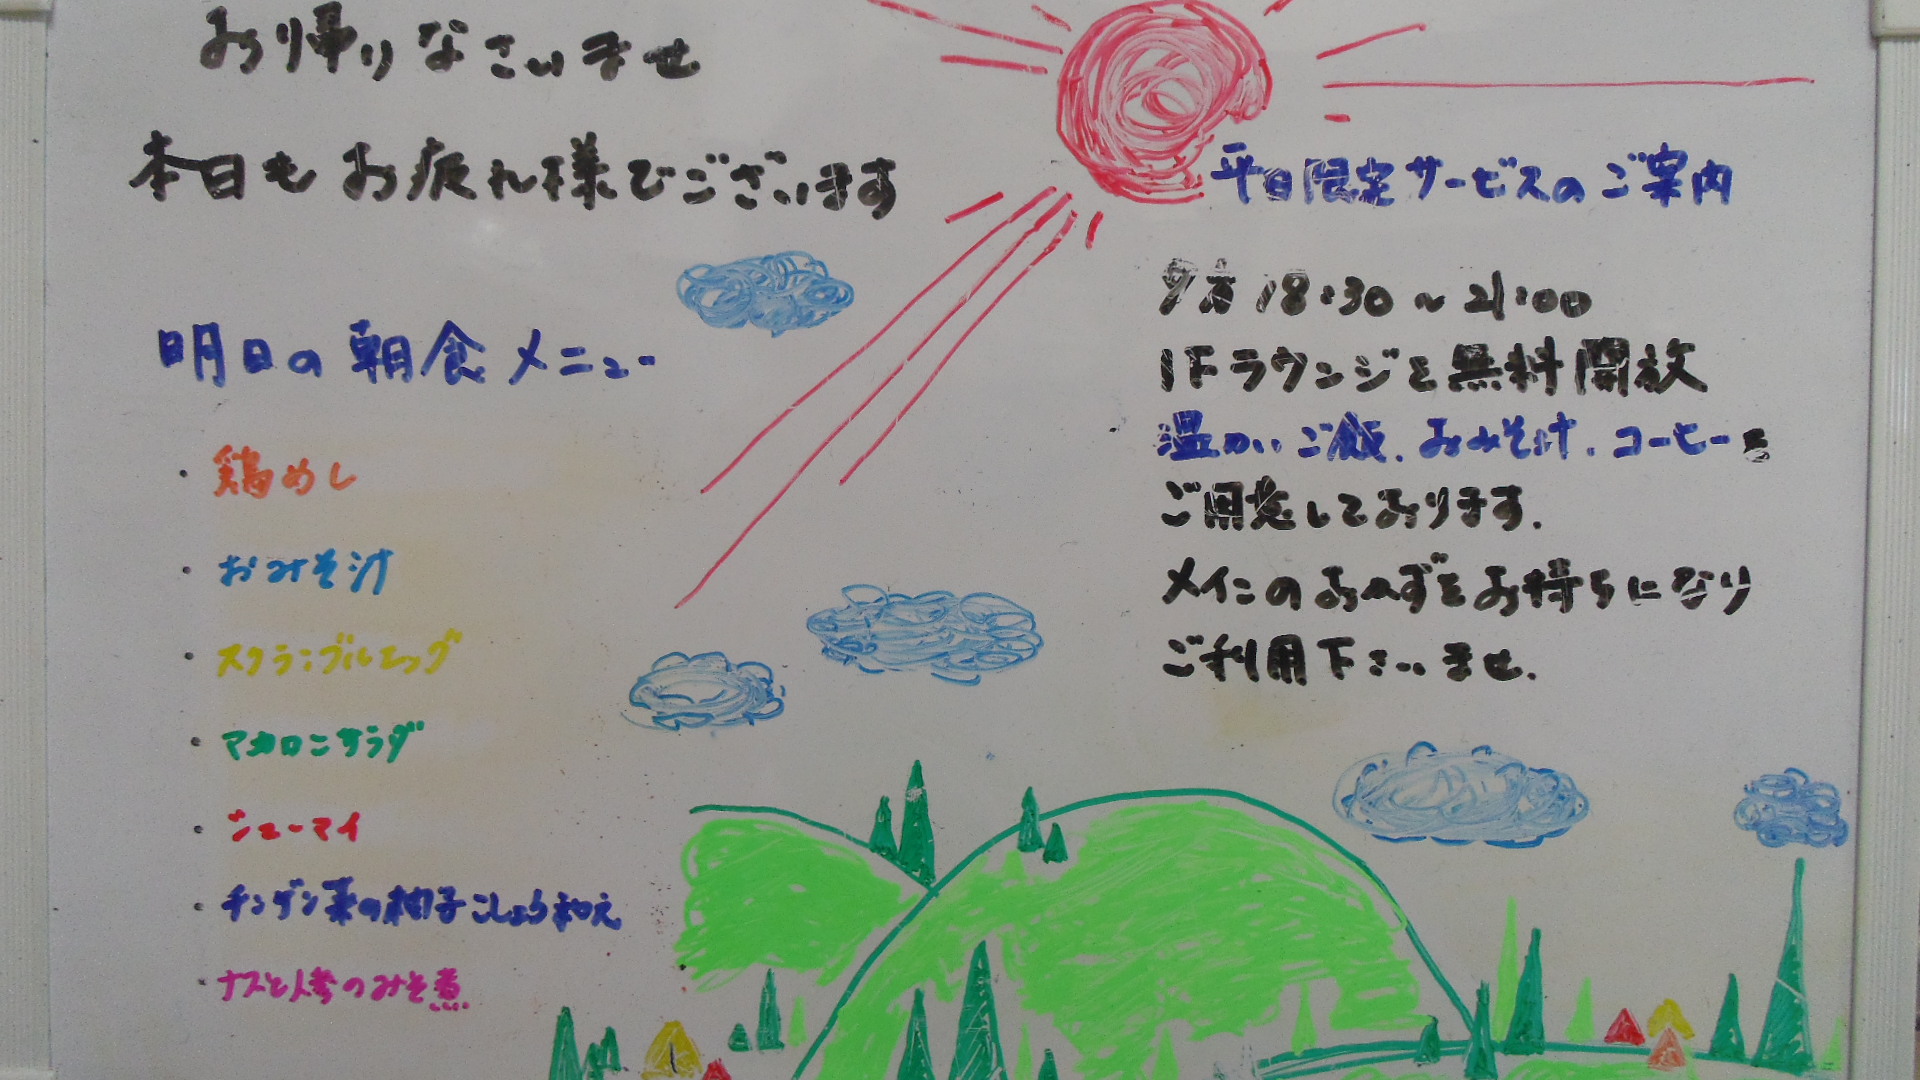 お帰りなさいませ
本日もお疲れ様でございます
明日の朝食メニュー
・鶏めし
・おみそ汁
・スクランブルエッグ
・マカロニサラダ
・シューマイ
・チンゲン菜の柚子こしょう和え
・ナスと人参のみそ煮
平日限定サービスのご案内
夕方 18:30～21:00
1Fラウンジを無料開放
温かいご飯、おみそ汁、コーヒーを
ご用意しております。
メインのおかずをお持ちになり
ご利用下さいませ。